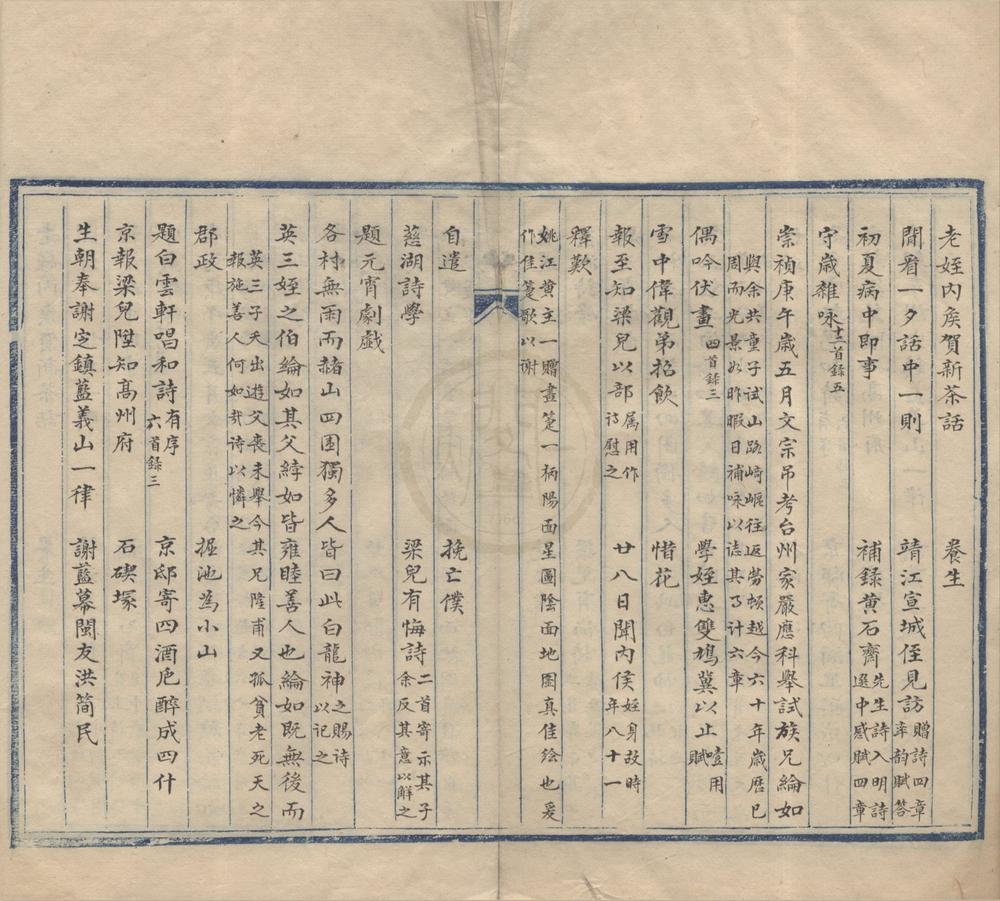 老姪內矦賀新茶話　養生
閒看一夕話中一則　靖江宣城侄見訪贈詩四章率韵賦答
初夏病中即事　補錄黄石齋先生詩入明詩選中感賦四章
守歲雜咏十二首錄五
崇禎庚午歲五月文宗吊考台州家嚴應科舉試族兄綸如
與余共童子試山路崎嶇往返勞頓越今六十年歲曆已
周而光景如昨暇日補咏以誌其事計六章
偶吟伏畫四首錄三　學姪惠雙鳩冀以止噎用賦
雪中偉觀弟招飲　惜花
報至知梁兒以部属用作詩慰之　廿八日聞內侯姪身故時年八十一
釋歎
姚江黄主一贈畫箑一柄陽面星圖陰面地圖真佳絵也爰
作佳箑歌以谢
自遣　挽亡僕
慈湖詩學　梁兒有悔詩二首寄示其子余反其意以解之
題元宵劇戲
各村無雨而赭山四圍獨多人皆曰此白龍神之賜詩以記之
英三姪之伯綸如其父綍如皆雍睦善人也綸如既無後而
英三子夭出遊父喪未舉今其兄隆甫又孤貧老死天之
報施善人何如哉詩以憐之
郡政　掘池為小山
題白雲軒唱和詩有序六首錄三　京邸寄四酒巵醉成四什
京報梁兒陞知高州府　石碶塚
生朝奉謝定鎮藍義山一律　謝藍幕閩友洪簡民